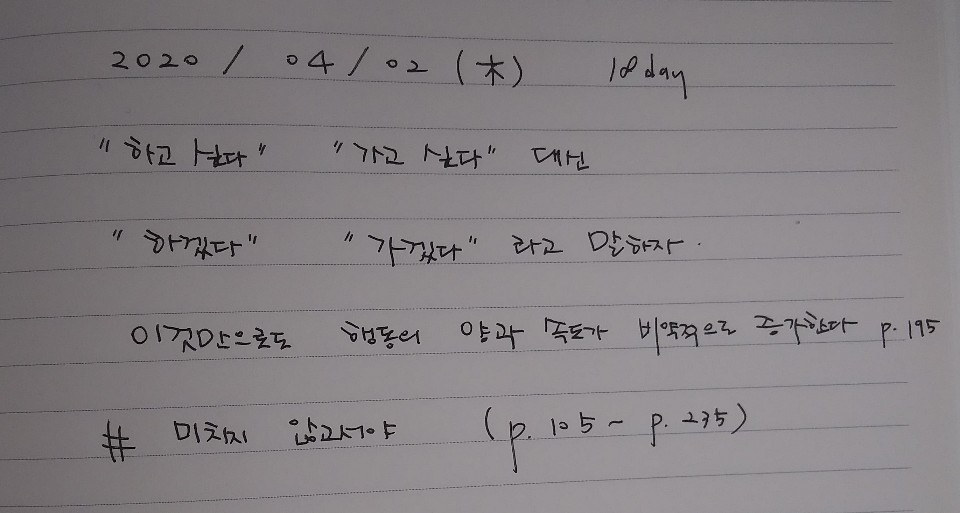 2020 / 04 / 02 (木) 18 day
"하고 싶다" "가고 싶다" 대신
"하겠다" "가겠다" 라고 말하자.
이것만으로도 행동의 양과 속도가 비약적으로 증가한다 p.195
# 미치지 않고서야 (p.105~p.235)